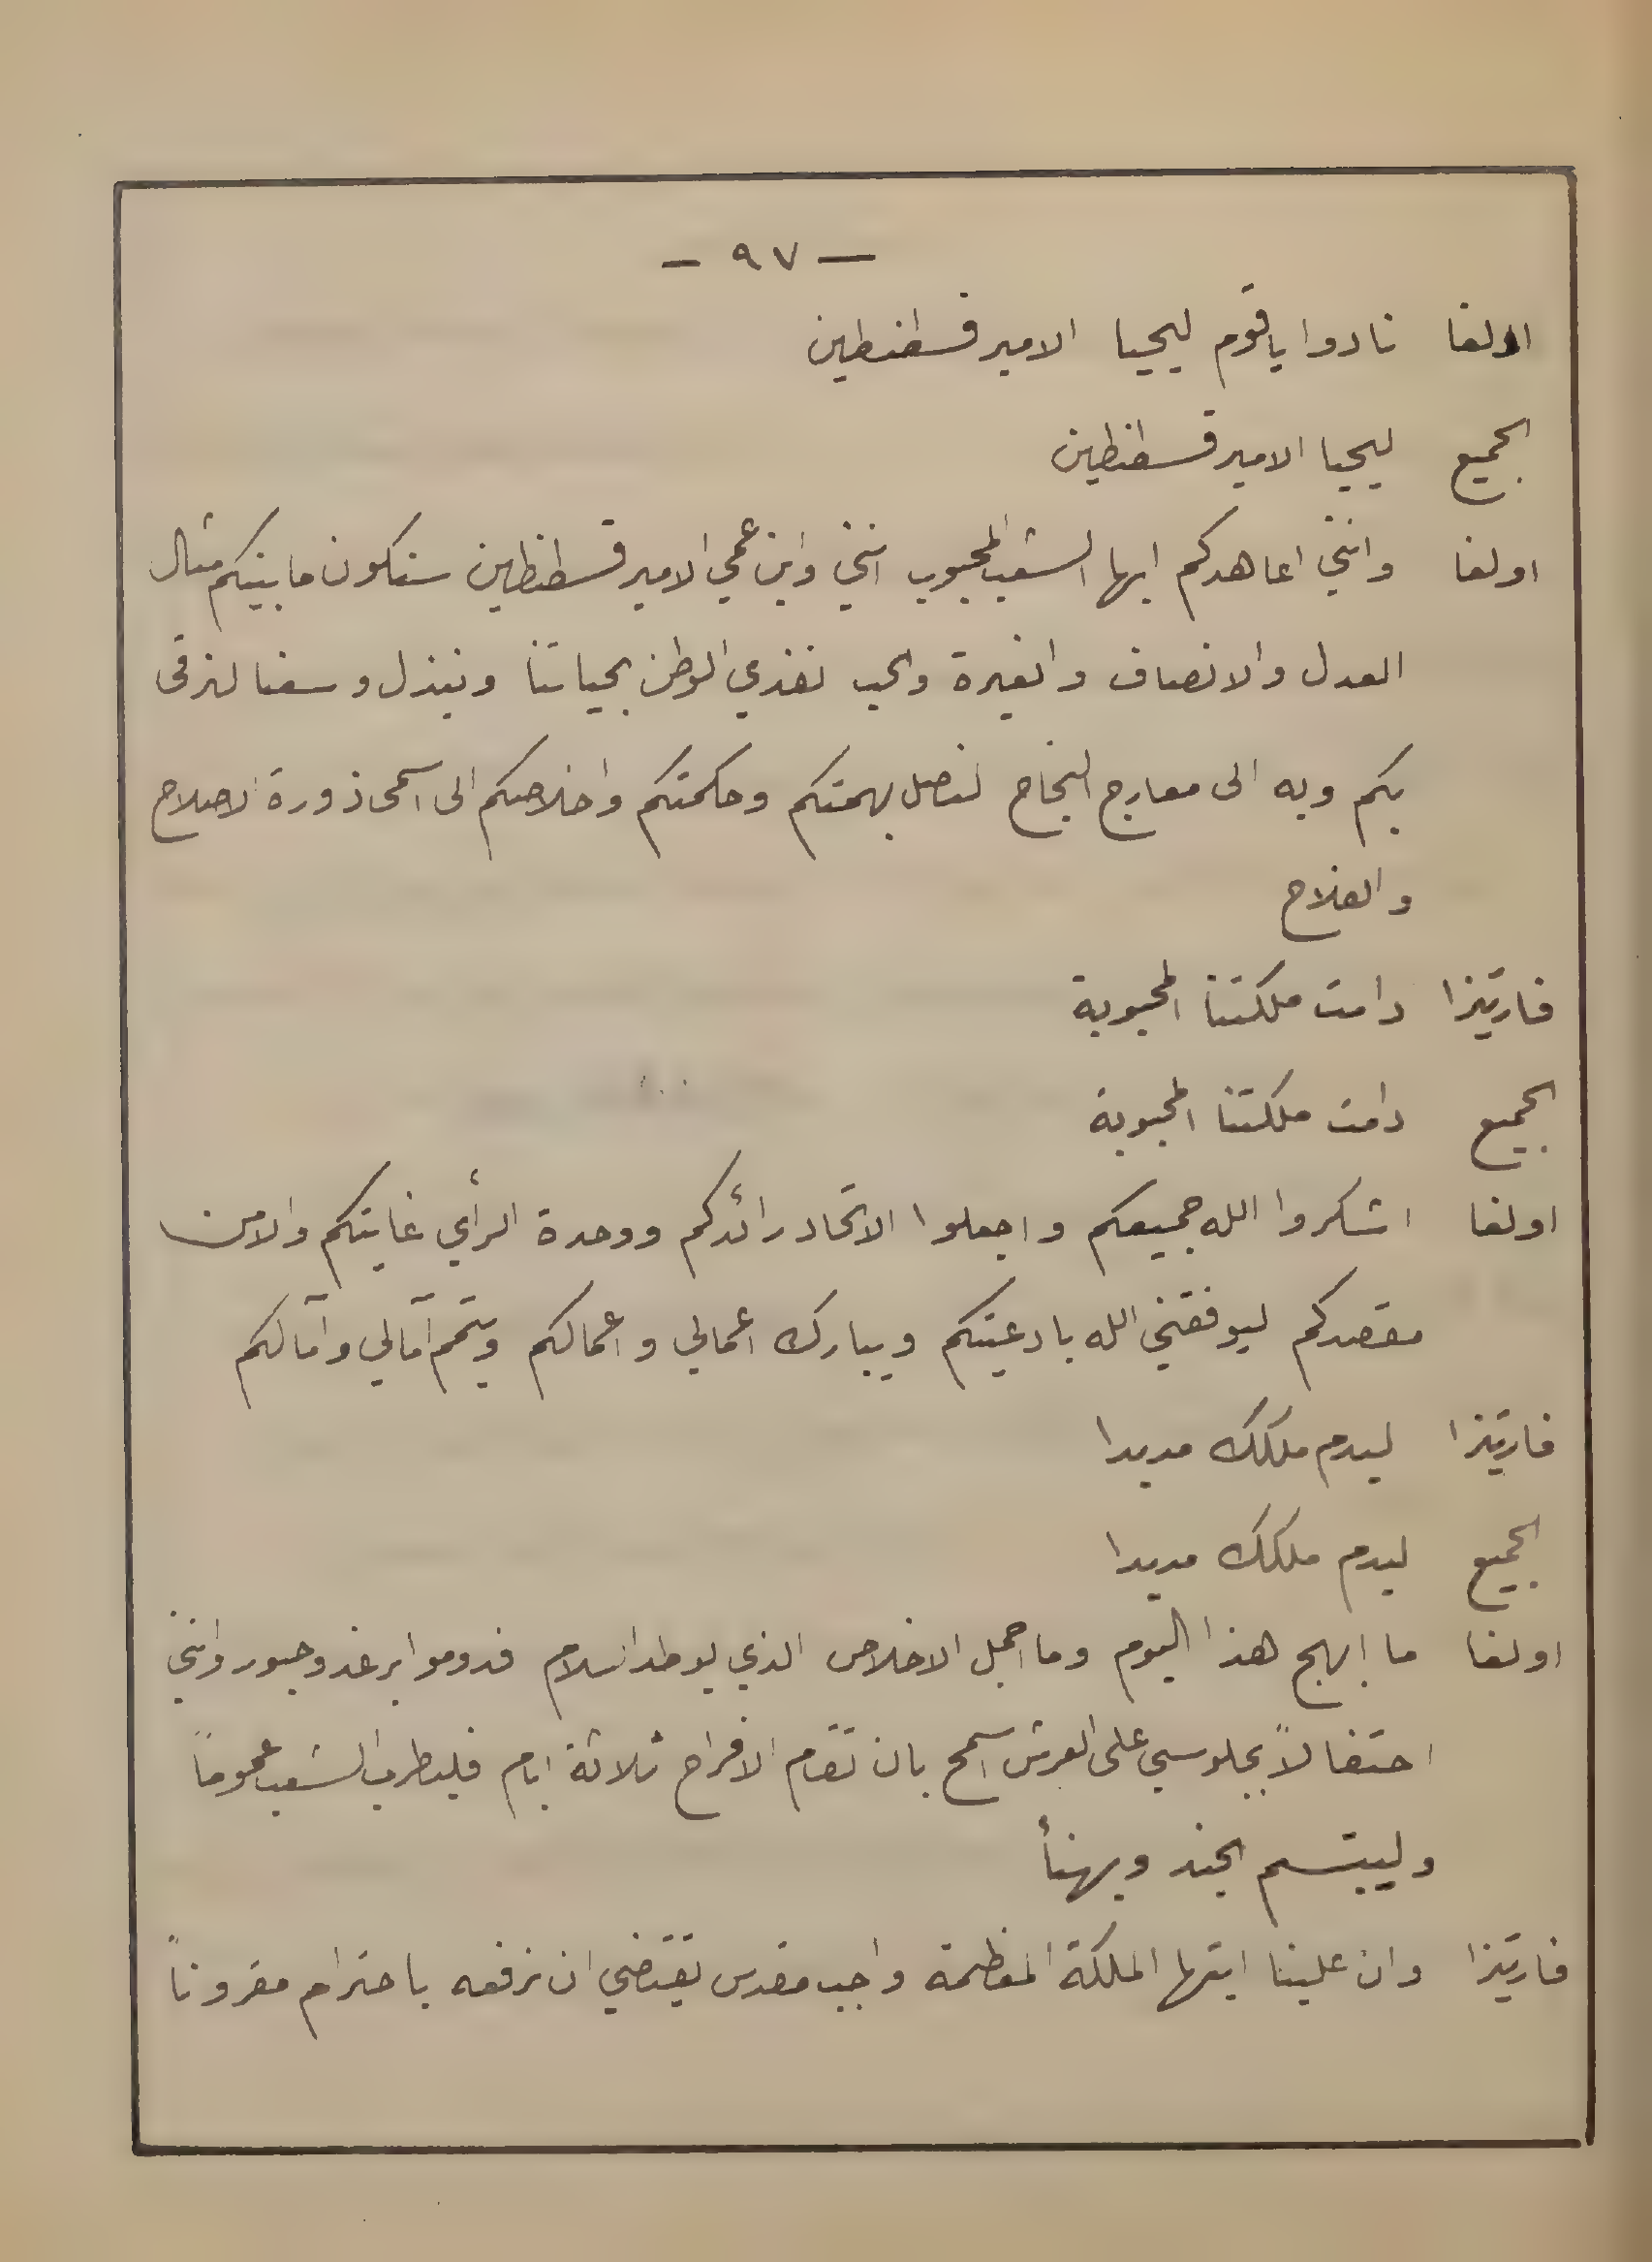 — ٩٧ —
اولغا نادوا ياقوم ليحيا الامير قسطنطين
الجميع ليحيا الامير قسطنطين
اولغا وانني اعاهدكم ايها الشعب المحبوب انني وابن عمي الامير قسطنطين سنكون ما بينكم مثال
العدل والانصاف والغيرة والحب نغذي الوطن بحياتنا ونبذل وسعنا لنرقى
بكم وبه الى معارج النجاح لنصل بهمتكم وحكمتكم واخلاصكم الى اسمى ذورة الاصلاح
والفلاح
فارتيزا دامت ملكتنا المحبوبة
الجميع دامت ملكتنا المحبوبة
اولغا اشكروا الله جميعكم واجعلوا الاتحاد رائدكم ووحدة الرأي غايتكم والامن
مقصدكم ليوفقني الله بادعيتكم ويبارك اعمالي واعمالكم ويتمم آمالي وآمالكم
فارتيزا ليدم ملكك مديدا
الجميع ليدم ملكك مديدا
اولغا ما ابهج هذا اليوم وما اجمل الاخلاص الذي يوطد السلام فدوموا برغد وحبور وانني
احتفالاً بجلوسي على العرش اسمح بان تقام الافراح ثلاثة ايام فليطرب الشعب عموماً
وليبتسم الجند ويهنأ
فارتيزا وان علينا ايتها الملكة المعظمة واجب مقدس يقتضي ان نرفعه باحترام مقروناً